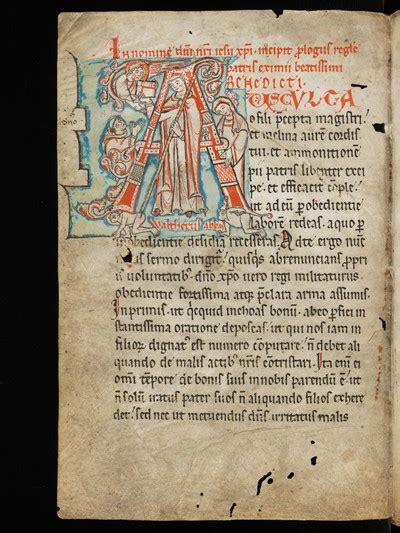 In nomine dñi nr̃i iesu xp̃i. incipit p̃logus regle
patris eximii beatissimi
BENEDICTI.
AUSCULTA
o fili p̃cepta magistri.
et inclina aurem cordis
tui. et ammonitionem
pii patris libenter exci
pe. et efficacit̃ cõple.
ut ad eum p obedientie
laborem redeas. a quo p
inobedientie desidia recesseras. Ad te ergo nunc
m̃s sermo dirigit̃. quisq̃s abrenuncians propri
is voluntatib; dño xp̃o vero regi militaturus.
obedientie fortissima atq; p̃clara arma assumis.
In primis. ut q̃cquid inchoas bonũ. ab eo perfici in
stantissima oratione deposcas. ut qui nos iam in
filioꝝ dignat̃ est numero cõputare. ñ debet ali
quando de malis actib; nr̃is cõtristari. Ita enĩ ei
omĩ tẽpore de bonis suis in nobis parendũ ẽ. ut
ñ solũ iratus pater suos ñ aliquando filios exhere
det. sed nec ut metuendus dñs irritatus malis
Waltherus abbas